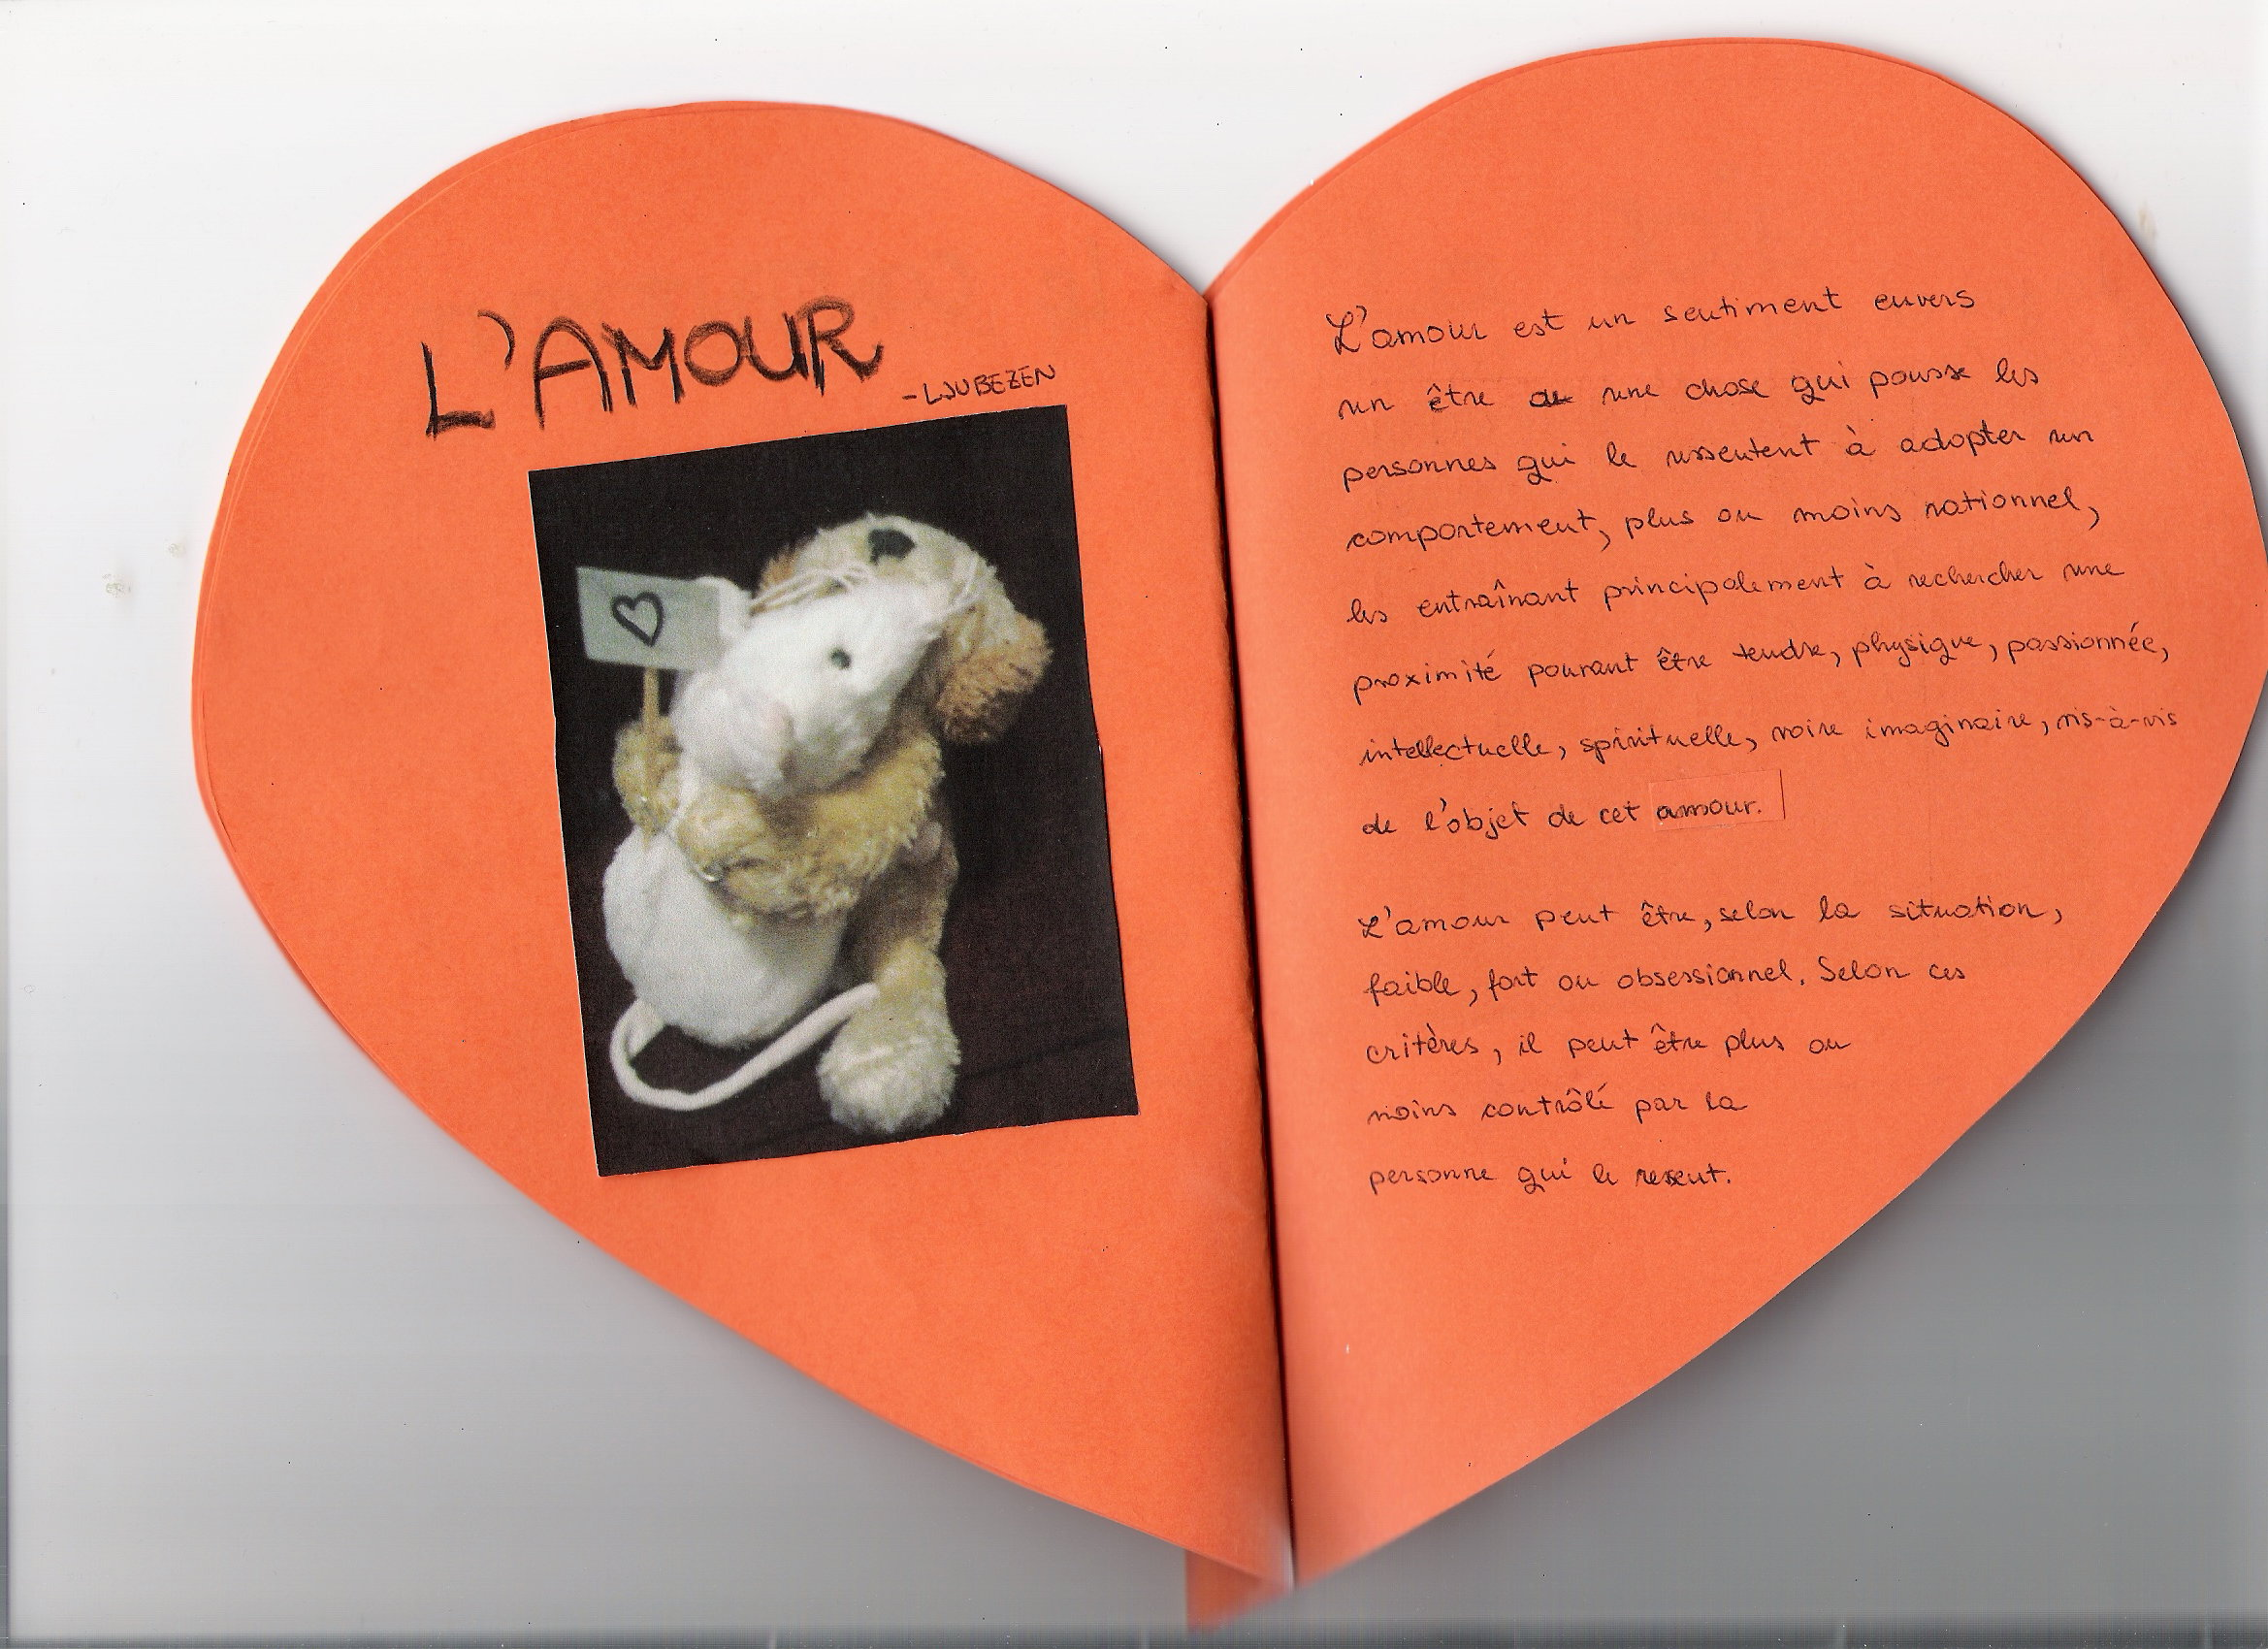 L'AMOUR
-LJUBEZEN
L'amour est un sentiment envers
un être ou une chose qui pousse les
personnes qui le ressentent à adopter un
comportement, plus ou moins rationnel,
les entraînant principalement à rechercher une
proximité pouvant être tendre, physique, passionnée,
intellectuelle, spirituelle, voire imaginaire, vis-à-vis
de l'objet de cet amour.
L'amour peut être, selon la situation,
faible, fort ou obsessionnel. Selon ces
critères, il peut être plus ou
moins contrôlé par la
personne qui le ressent.